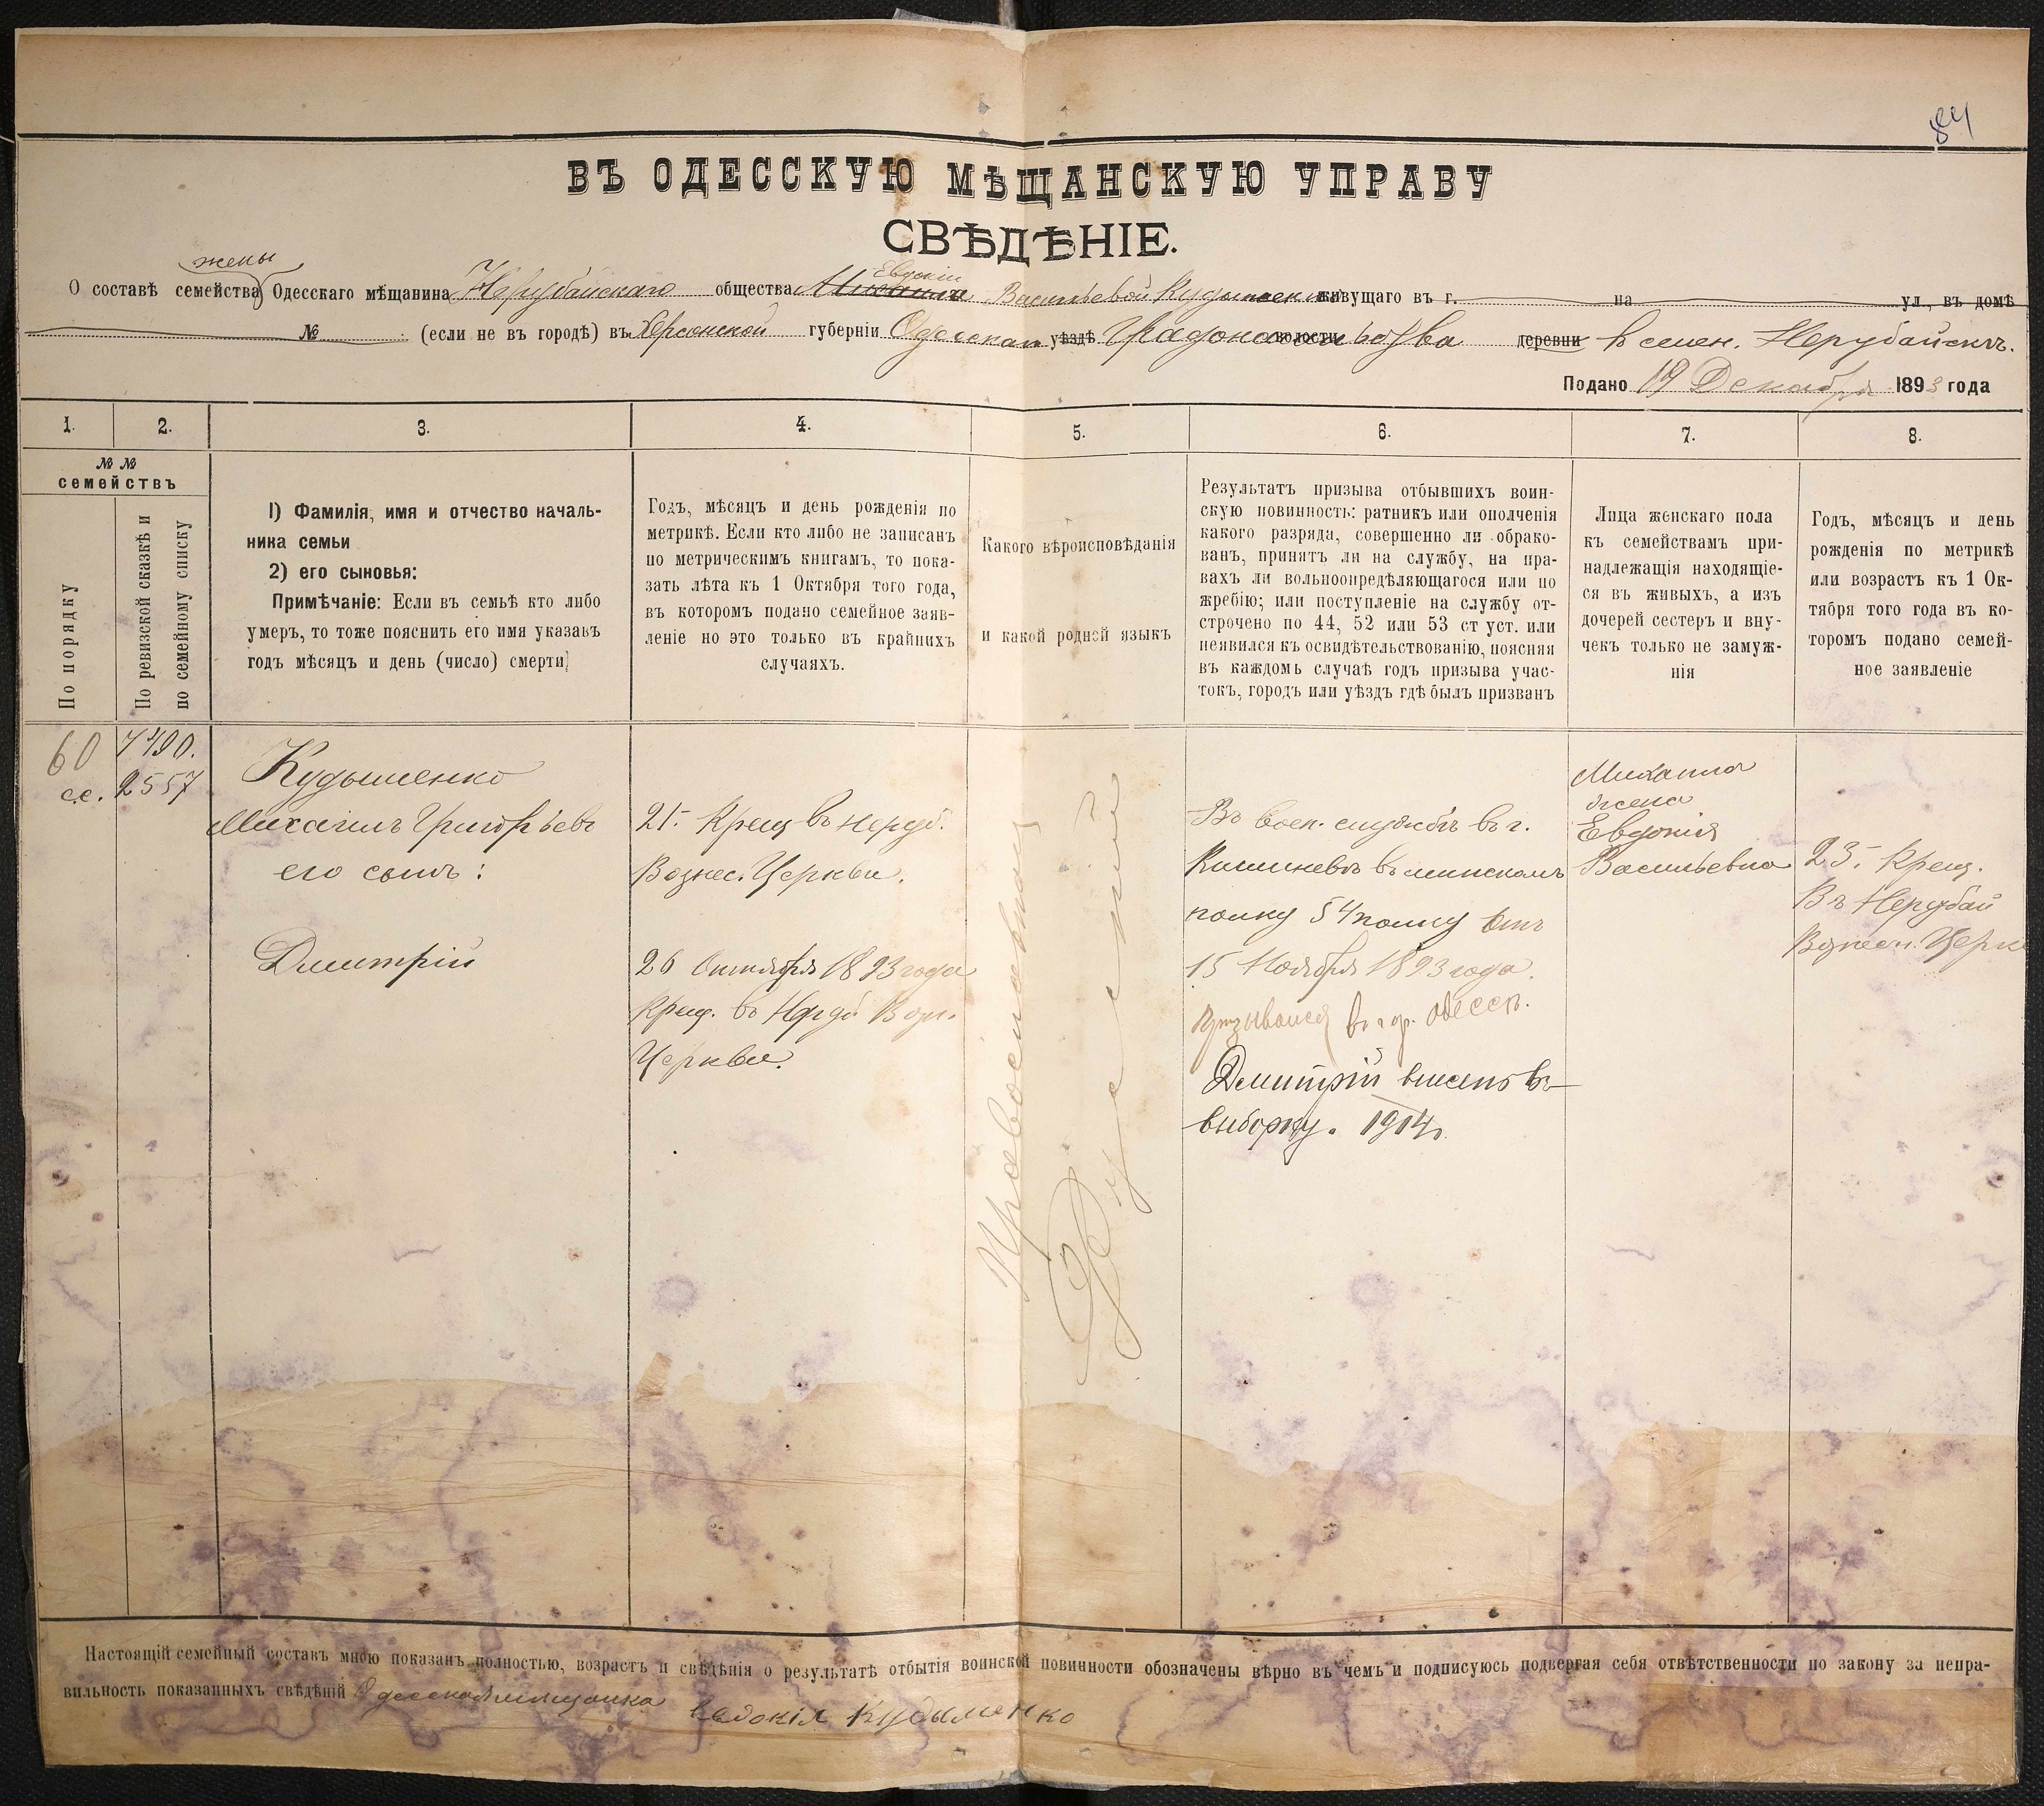 84
ВЪ ОДЕССКУЮ МѢЩАНСКУЮ УПРАВУ
СВѢДѢНІЕ.
жены
Евдокіи
О составѣ семейства Одесскаго мѣщанина Нерубайскаго общества Михаила Васильевой Кудыменко живущаго въ г. на ул., въ домѣ
№ (если не въ городѣ) въ Херсонской губерніи Одесскаго уѣздѣ Градонач волости деревни в селен. Нерубайскъ.
Подано 19 Декабря 1893 года
1. 2. 3. 4. 5. 6. 7. 8.
№ №
семействъ
По порядку
По ревизской сказкѣ и
по семейному списку
1) Фамилія, имя и отчество началь-
ника семьи
2) его сыновья:
Примѣчаніе: Если въ семьѣ кто либо
умеръ, то тоже пояснить его имя указавъ
годъ мѣсяцъ и день (число) смерти
Годъ, мѣсяцъ и день рожденія по
метрикѣ. Если кто либо не записанъ
по метрическимъ книгамъ, то пока-
зать лѣта къ 1 Октября того года,
въ которомъ подано семейное заяв-
леніе но это только въ крайнихъ
случаяхъ.
Какого вѣроисповѣданія
и какой родной языкъ
Результатъ призыва отбывшихъ воин-
скую повинность: ратникъ или ополченія
какого разряда, совершенно ли обрако-
ванъ, принятъ ли на службу, на пра-
вахъ ли вольноопредѣляющагося или по
жребію; или поступленіе на службу от-
строчено по 44, 52 или 53 ст уст. или
неявился къ освидѣтельствованію, поясняя
въ каждомъ случаѣ годъ призыва учас-
токъ, городъ или уѣздъ гдѣ былъ призванъ
Лица женскаго пола
къ семействамъ при-
надлежащія находящіе-
ся въ живыхъ, а изъ
дочерей сестеръ и вну-
чекъ только не замуж-
нія
Годъ, мѣсяцъ и день
рожденія по метрикѣ
или возрастъ къ 1 Ок-
тября того года въ ко-
торомъ подано семей-
ное заявленіе
60
с.с.
2557
Кудыменко
Михаилъ Григорьевъ
его сынъ:
Дмитрій
21. Крещ въ Неруб.
Вознес. Церкви.
26 Октября 1893 года
Крещ. въ Неруб Возн.
Церкви.
Православный
Русскій
Въ воен. службѣ въ г.
Кишиневѣ въ минскомъ
полку 54 полку отъ
15 Ноября 1893 года.
Призывался въ гор. Одессѣ.
Дмитрій внесенъ въ
выборку. 1914г.
Михаила
жена
Евдокія
Васильевна
23. Крещ.
Въ Нерубай
Вознесн. Церкв
Настоящій семейный составъ мною показанъ полностью, возрастъ и свѣдѣнія о результатѣ отбытія воинской повинности обозначены вѣрно въ чемъ и подписуюсь подвергая себя отвѣтственности по закону за непра-
вильность показанныхъ свѣдѣній Одесская мещанка Евдокія Кудыменко